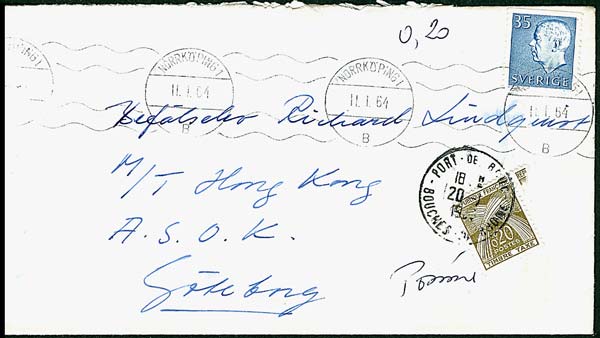 0,20
35
SVERIGE
NORRKÖPING 1
11.1.64
B
NORRKÖPING 1
11.1.64
B
11.1.64
B
Befälselev Richard Lindqvist
M/T Hong Kong
A.S.O.K.
Göteborg
PORT-DE-
18 H
20
19
BOUCHES-DU-RHONE
0,20
POSTES
TIMBRE TAXE